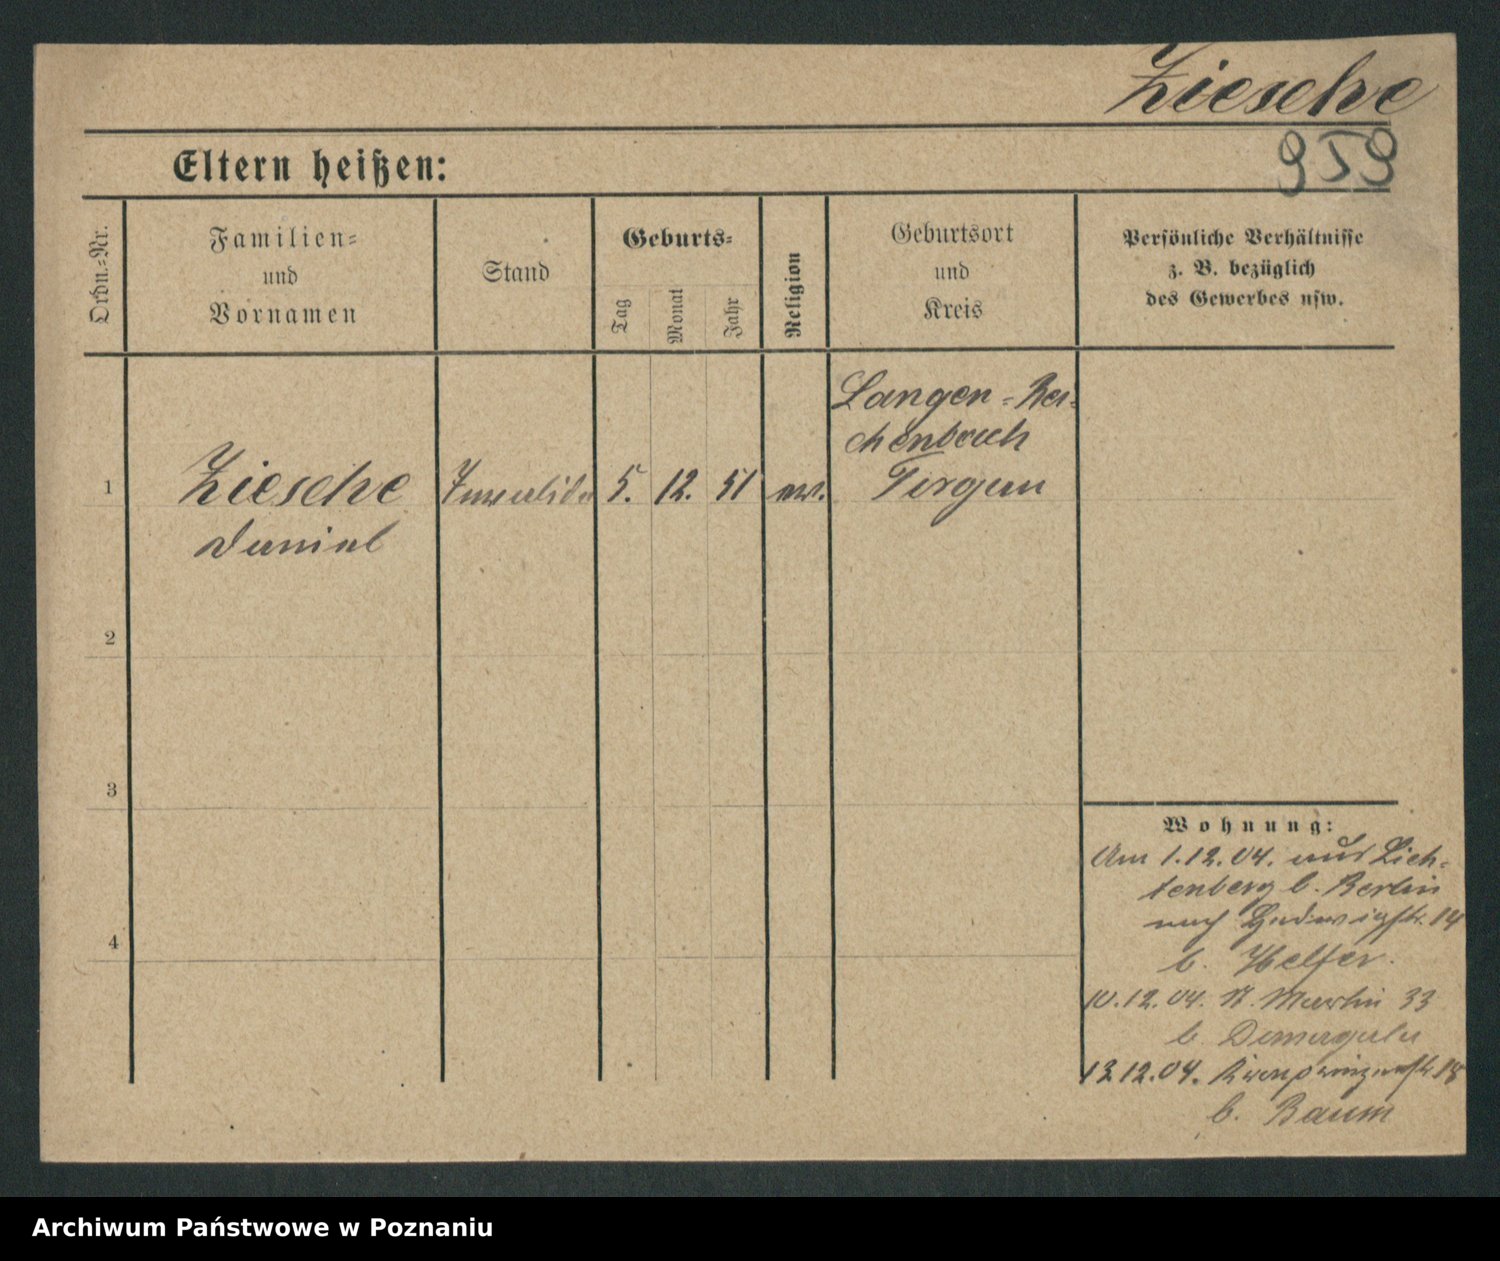 Ziesche
959
Eltern heißen:
Ordn.-Nr.
Familien-
und
Vornamen
Stand
Geburts-
Tag
Monat
Jahr
Religion
Geburtsort
und
Kreis
Persönliche Verhältnisse
z. B. bezüglich
des Gewerbes usw.
Langen-Rei-
chenbach
1 Ziesche Invalide 5. 12. 51 ev. Torgau
Daniel
2
3
4
Wohnung:
Am 1.12.04. aus Lich-
tenberg b. Berlin
nach Hedwigstr. 14
b. Helfer.
10.12.04. St. Martin 33
b.
13.12.04. Kronprinzenstr. 18
b. Baum
Archiwum Państwowe w Poznaniu